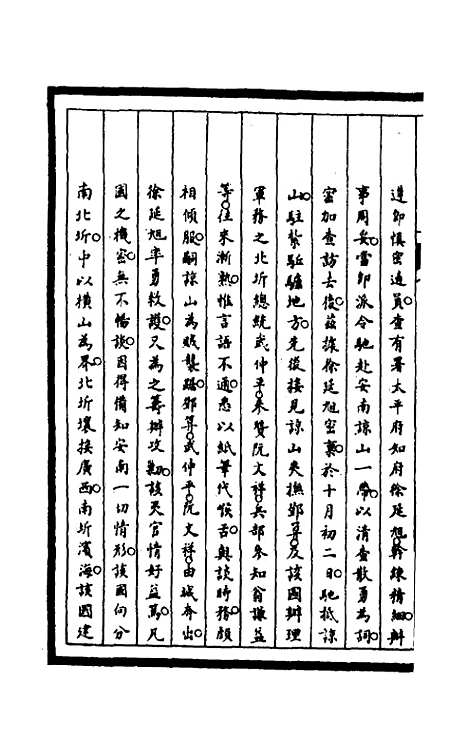 遵即慎密遴員查有署太平府知府徐延旭幹練精細辦
事周妥當即派令馳赴安南諒山一帶以清查散勇為詞
密加查訪去後茲據徐延旭密稟於十月初二日馳抵諒
山駐紮驅驢地方先後接見諒山夾撫鄧算及該國辦理
軍務之北圻總統武仲平朿贊阮文祥兵部參知翁謙益
等往來漸熟惟言語不通悉以紙筆代喉舌與談時務頗
相傾服嗣諒山為賊襲踞鄧算武仲平阮文祥由城奔出
徐延旭率勇救護又為之籌辦攻剿該夾官情好益篤凡
國之機密無不暢談因得備知安南一切情形該國向分
南北圻中以橫山為界北圻壤接廣西南圻濱海該國建